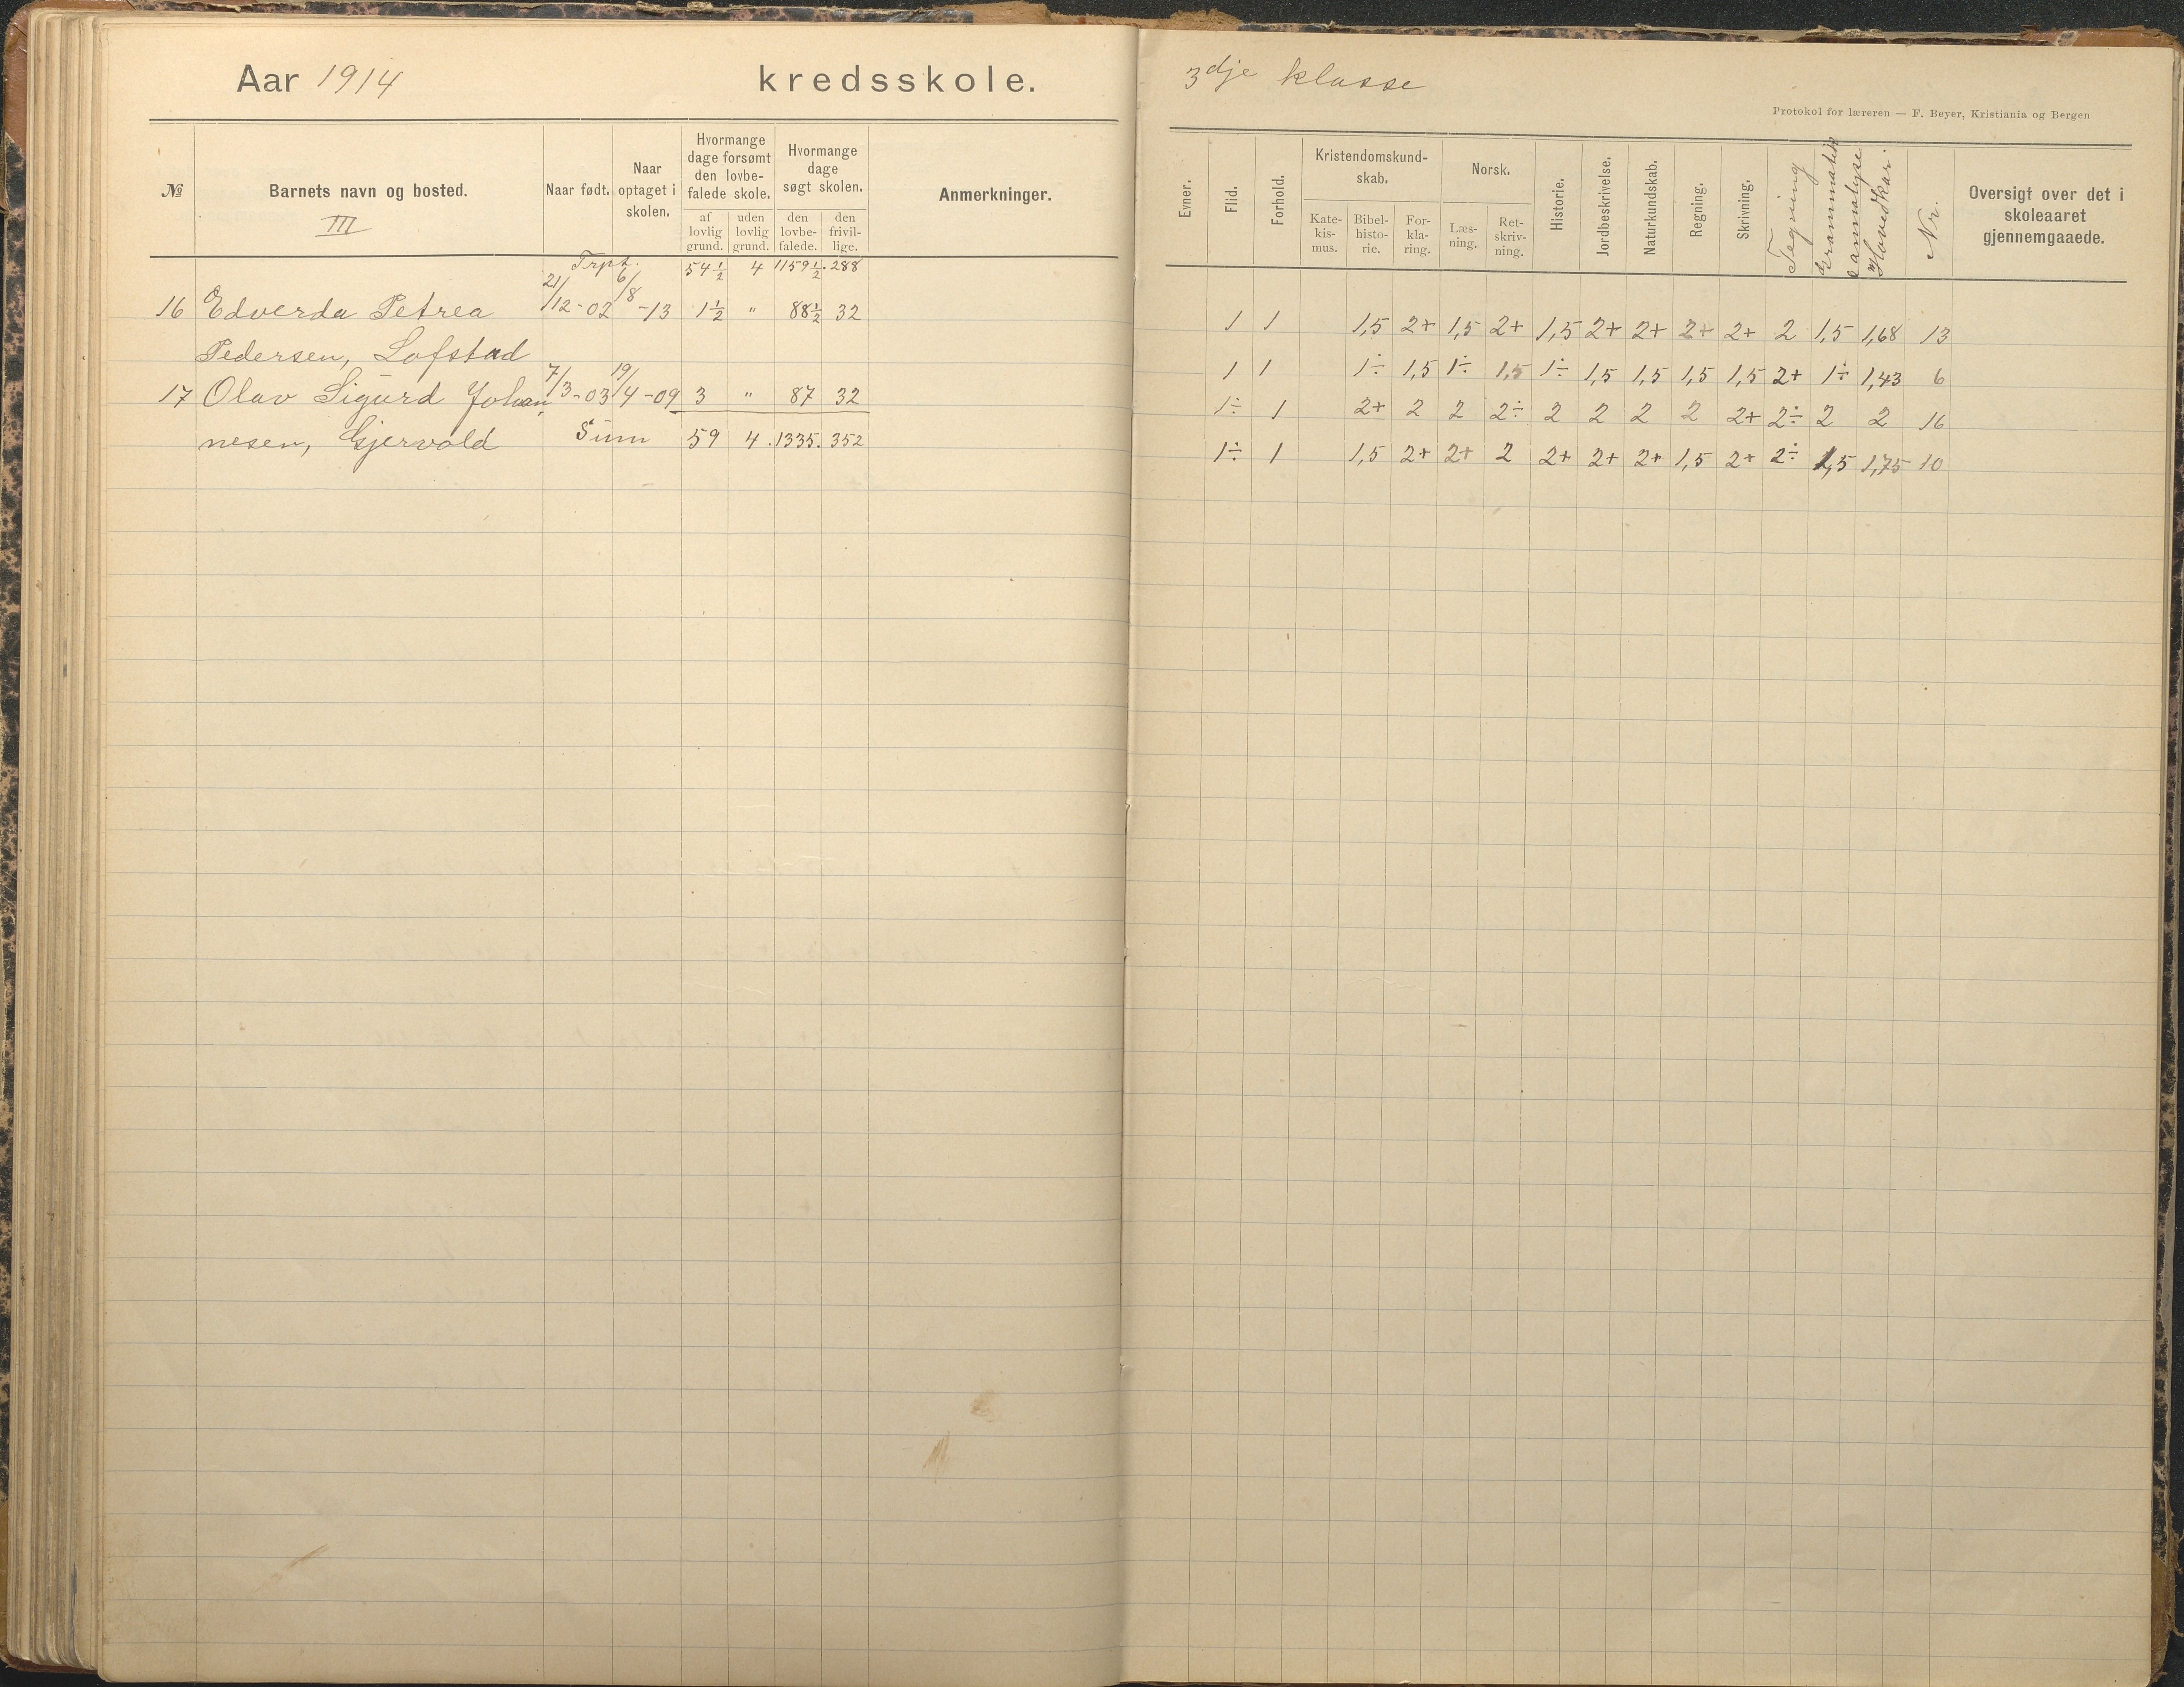 Aar 1914 kredsskole.
№ Barnets navn og bosted. III Naar født. Naar optaget i skolen. Hvormange dage forsømt den lovbefalede skole. af lovlig grund. uden lovlig grund. Hvormange dage søgt skolen. den lovbefalede. den frivillige. Anmerkninger.
Trpt. 54½ 4 1159½. 288
16 Edverda Petrea 21/12-02 6/8-13 1½ " 88½ 32
Pedersen, Lofstad
17 Olav Sigurd Johan 7/3-03 19/4-09 3 " 87 32
nesen, Gjervold Sum 59 4 .1335. 352
3dje klasse
Protokol for læreren — F. Beyer, Kristiania og Bergen
Evner. Flid. Forhold. Kristendomskundskab. Katekismus. Bibelhistorie. Forklaring. Norsk. Læsning. Retskrivning. Historie. Jordbeskrivelse. Naturkundskab. Regning. Skrivning. Tegning Grammatik Hovedkar. Nr. Oversigt over det i skoleaaret gjennemgaaede.
1 1 1,5 2+ 1,5 2+ 1,5 2+ 2+ 2+ 2+ 2 1,5 1,68 13
1 1 1÷ 1,5 1÷ 1,5 1÷ 1,5 1,5 1,5 1,5 2+ 1÷ 1,43 6
1÷ 1 2+ 2 2 2÷ 2 2 2 2 2+ 2÷ 2 2 16
1÷ 1 1,5 2+ 2+ 2 2+ 2+ 2+ 1,5 2+ 2÷ 1,5 1,75 10